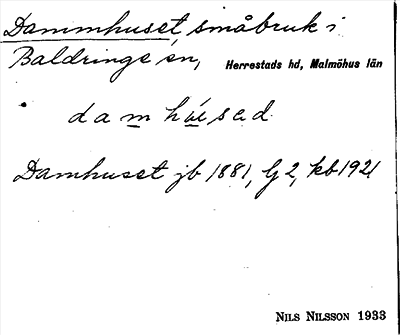 Dammhuset, småbruk i
Baldringe sn, Herrestads hd, Malmöhus län
damhúsad
Damhuset jb 1881, G 2, kb 1921
NILS NILSSON 1933